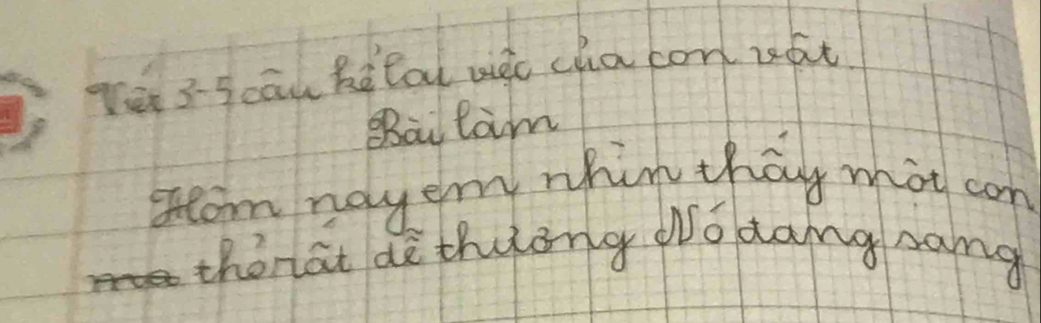 Viết 3-5 câu kể lại việc của con vật.
Bài làm
Hôm nay em nhìn thấy một con
thỏ rất dễ thương Nó đang sang